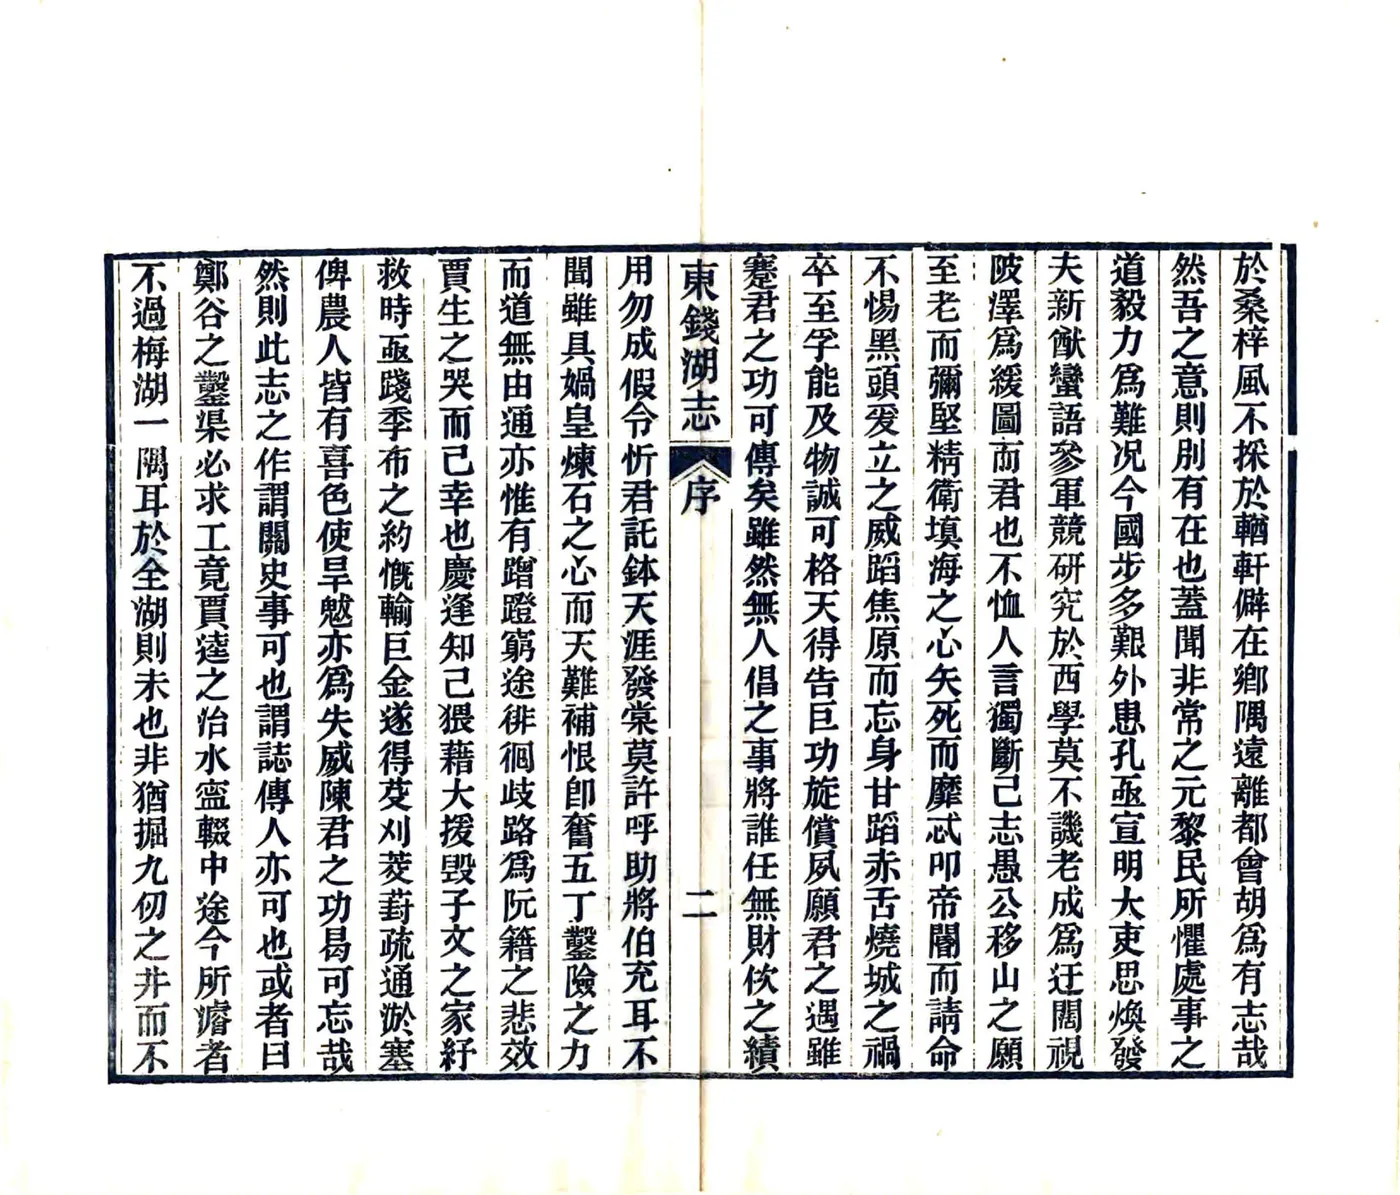 於桑梓風不採於輶軒僻在鄉隅遠離都會胡爲有志哉
然吾之意則別有在也蓋聞非常之元黎民所懼處事之
道毅力爲難况今國步多艱外患孔亟宣明大吏思煥發
夫新猷蠻語參軍競研究於西學莫不譏老成爲迂闊視
陂澤爲緩圖而君也不恤人言獨斷己志愚公移山之願
至老而彌堅精衛塡海之心矢死而靡忒叩帝閽而請命
不惕黑頭爰立之威蹈焦原而忘身甘蹈赤舌燒城之禍
卒至孚能及物誠可格天得告巨功旋償夙願君之遇雖
蹇君之功可傳矣雖然無人倡之事將誰任無財佽之績
東錢湖志
序
二
用勿成假令忻君託鉢天涯發棠莫許呼助將伯充耳不
聞雖具媧皇煉石之心而天難補恨卽奮五丁鑿險之力
而道無由通亦惟有蹭蹬窮途徘徊歧路爲阮籍之悲效
賈生之哭而己幸也慶逢知己猥藉大援毀子文之家紓
救時亟踐季布之約慨輸巨金遂得芟刈茭葑疏通淤塞
俾農人皆有喜色使旱魃亦爲失威陳君之功曷可忘哉
然則此志之作謂關史事可也謂誌傳人亦可也或者曰
鄭谷之鑿渠必求工竟賈逵之治水寍輟中途今所濬者
不過梅湖一隅耳於全湖則未也非猶掘九仞之井而不